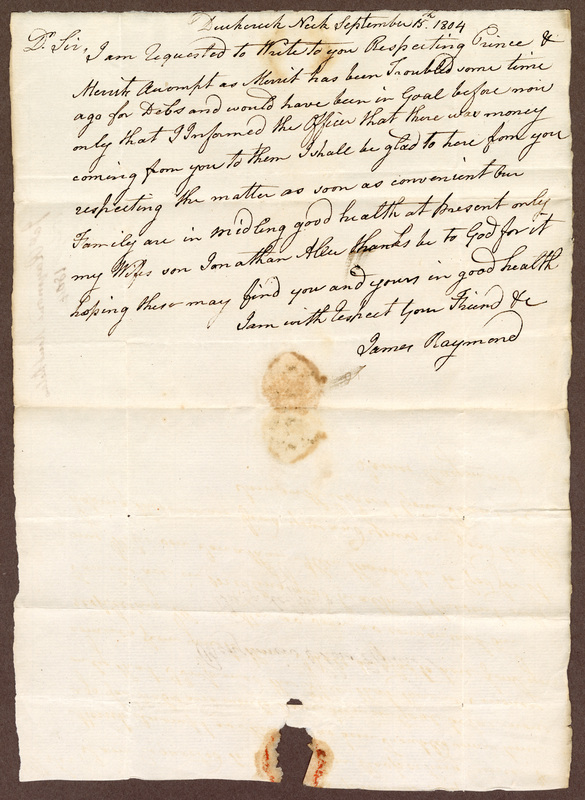 Duckcreek Neck September 15th. 1804
Dr. Sir, I am requested to Write to you Respecting Prince, &
Merrits Acompt as Merrit has been Troubled some time
ago for Debs and would have been in Goal before now
only that I Informed the Officer that there was money
coming from you to them I shall be glad to here from you
respecting the matter as soon as convenient Our
Family are in midling good health at present only
my Wifes son Jonathan Alee thanks be to God for it
hoping these may find you and yours in good health
I am with respect Your Friend &c
James Raymond